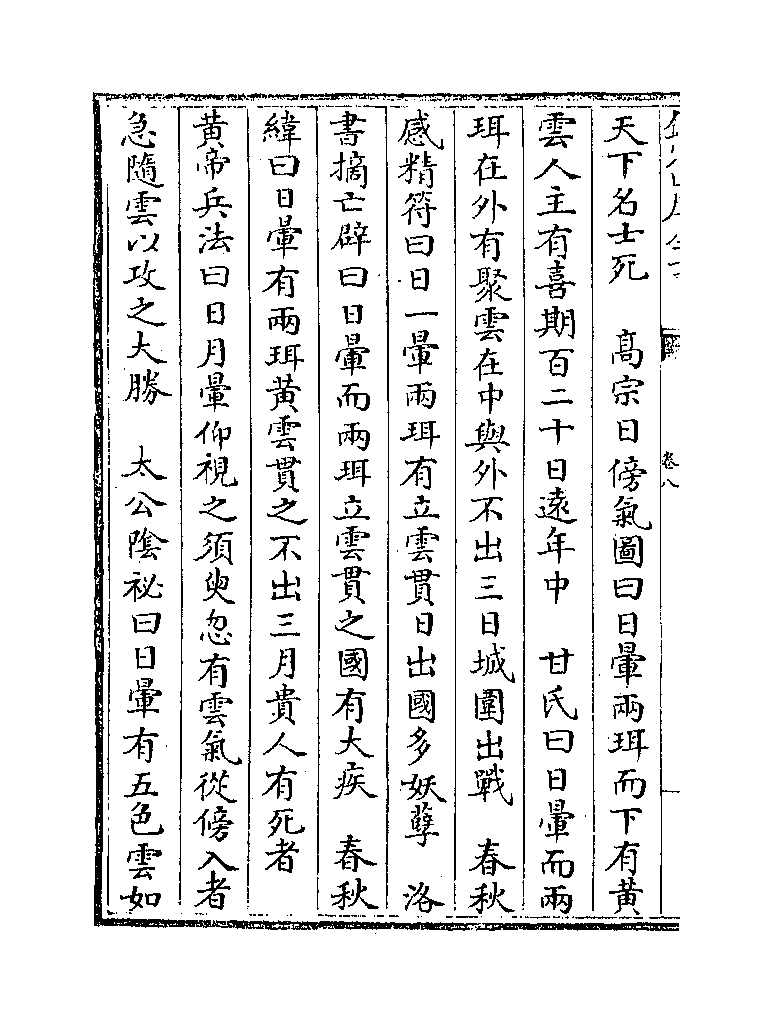 卷八
天下名士死　髙宗日傍氣圖曰日暈兩珥而下有黄
雲人主有喜期百二十日遠年中　甘氏曰日暈而兩
珥在外有聚雲在中與外不出三日城圍出戰　春秋
感精符曰日一暈兩珥有立雲貫日出國多妖孽　洛
書摘亡辟曰日暈而兩珥立雲貫之國有大疾　春秋
緯曰日暈有兩珥黄雲貫之不出三月貴人有死者
黄帝兵法曰日月暈仰視之須臾忽有雲氣從傍入者
急隨雲以攻之大勝　太公陰祕曰日暈有五色雲如